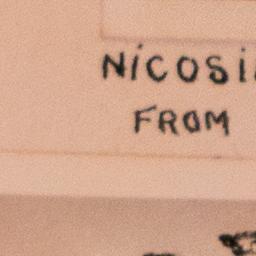 NICOSI
FROM